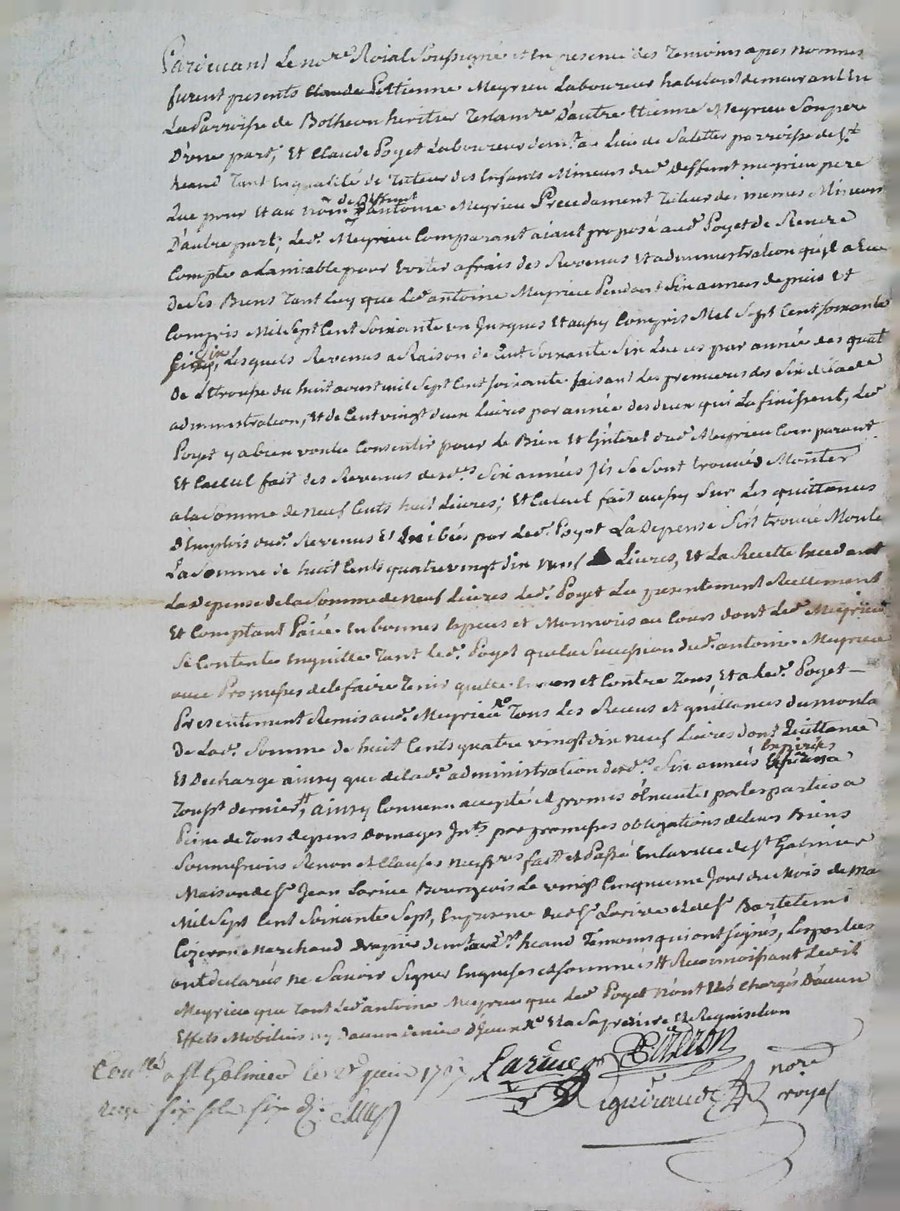 Pardevant Le nore Roial Soussigné et En presence des Temoins apres nommés
furent presents Etienne Meyrieu Laboureur habitant demeurant En
La Parroisse de Botheon heritier Testamre D'autre Etienne Meyrieu Son pere
D'une part, Et Claude Poyet Laboureur demt au Lieu de Salettes parroisse de St
heand Tant En qualité de Tuteur des Enfants Mineurs dud. deffunt meyrieu pere
Que pour Et au nom de deffunt antoine Meyrieu Precedament Tuteur des memes Mineurs
D'autre part; Led. Meyrieu Comparant aiant proposé aud. Poyet de Rendre
Compte a Lamiable pour Eviter a frais des Revenus Et administration qu'il a Eue
de Ses Biens Tant Luy que Led. antoine Meyrieu Pendant Six années depuis Et
Compris Mil Sept Cent Soixante un Jusques Et aussy Compris Mil Sept Cent Soixante
Six, Lesquels Revenus a Raison de Cent Soixante Six Livres par année des quatre
De Lettrousse du huit aoust mil Sept Cent Soixante faisant Les premieres des Six de lad.
administration, Et de Cent vingt deux Livres par année des deux qui La finissent, Led.
Poyet y a bien voulu Consentir pour le Bien Et L'interet dud. Meyrieu Comparant
Et Calcul fait des Revenus desd. Six années Ils Se Sont trouvés Monter
a la Somme de neuf Cents huit Livres; Et Calcul fait aussy Sur Les quittances
D'Emplois dud. Revenus Exibées par Led. Poyet La Depense S'est trouvée Monter
La Somme de huit Cents quatre vingt dix neuf Livres, Et La Recette Excedant
La depense de la Somme de neuf Livres Led. Poyet L'a presentement Reellement
Et Comptant Paiée En bonnes Especes et Monnoies au Cours dont Led. Meyrieu
Se Contente Enquitte Tant Led. Poyet que La Succession dud. antoine Meyrieu
avec Promesses de le faire Tenir quitte Envers et Contre Tous Et a Led. Poyet
Presentement Remis aud. Meyrieu Tous Les Recus et quittances du montant
De Lad. Somme de huit Cents quatre vingt dix neuf Livres dont Quittance
Et Decharge ainsy que de lad. administration desd. Six années Expirées
Touss. dernier, ainsy Convenu accepté et promis observer par les parties a
Peine de Tous depens domages Ints par promesses obligations de leurs Biens
Soumissions Renon et Clauses necessres fait et Passé En la ville de St Galmier
Maison de Sr Jean Larive Bourgeois Le vingt Cinquieme Jour du Mois de Mai
Mil Sept Cent Soixante Sept, En presence dud. Sr Larive et de Sr Bartelemi
Cizeron Marchand drapier demt aud. St heand Temoins qui ont Signés, Les parties
ont declarés ne Savoir Signer Enquises et Sommées Reconnoissant Led.
Meyrieu que Tant Led. antoine Meyrieu que Led. Poyet N'ont Etés Chargés D'aucun
Effets Mobiliers ny d'aucun deniers
Larive Cizeron
nore
roial
Conllé a St Galmier le 2e juin 1767
reçu six sols six d.